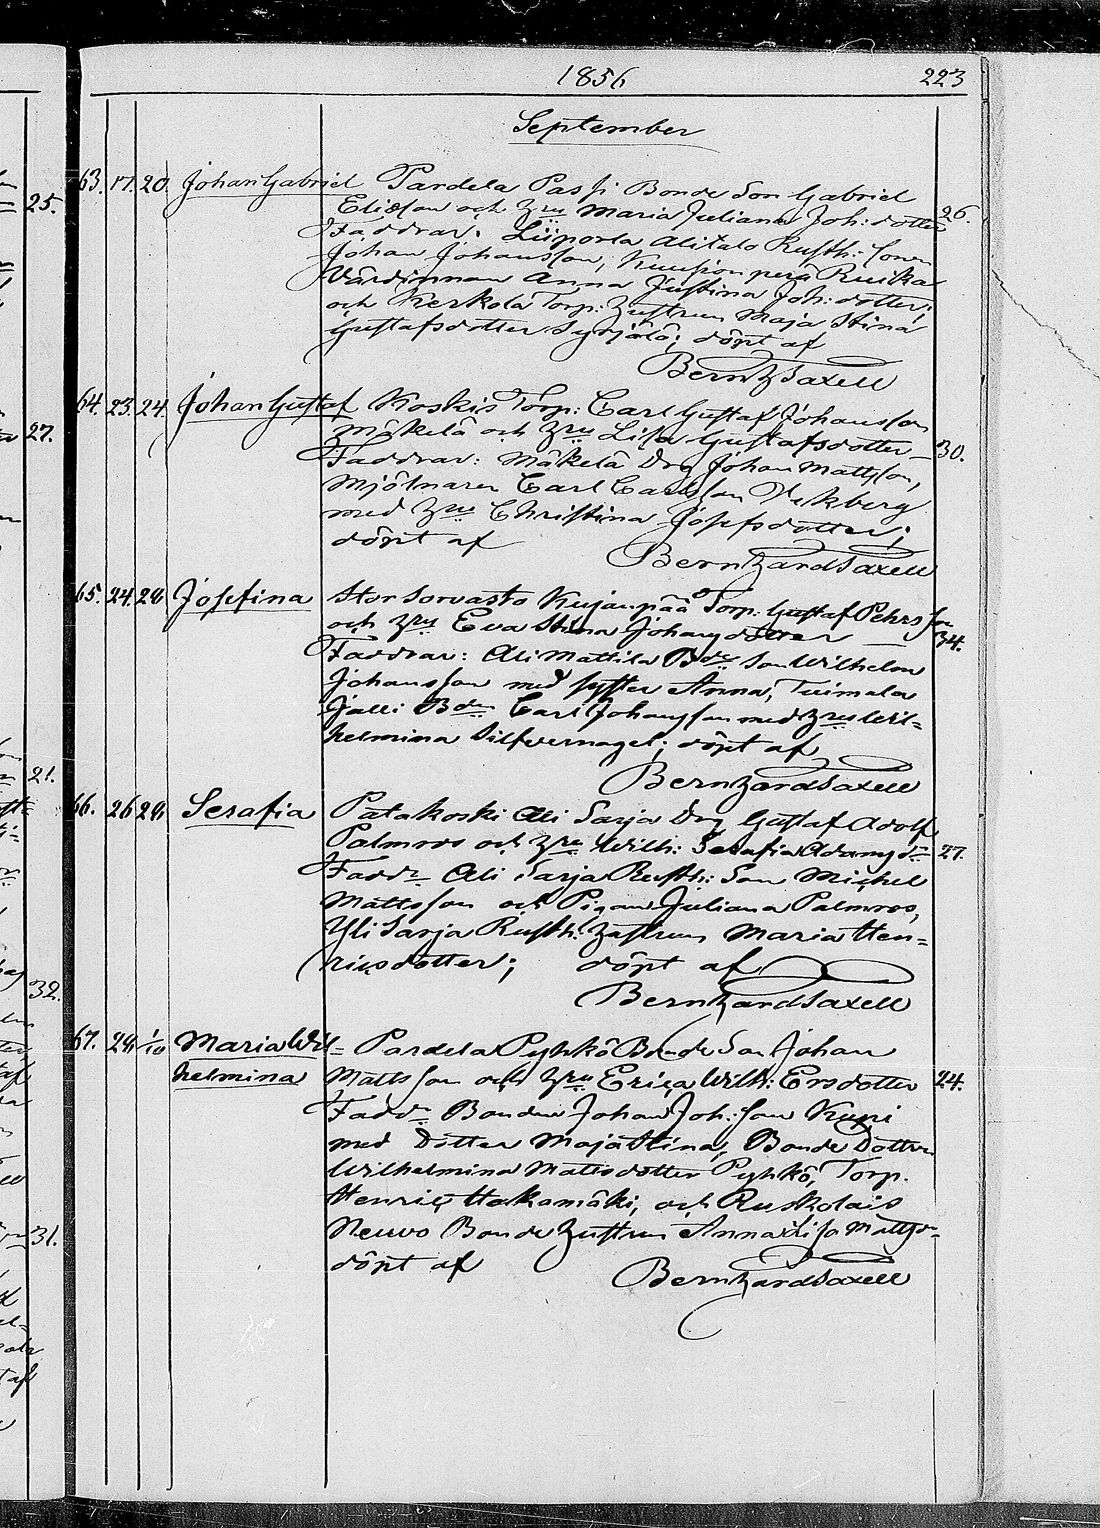 1856 223
September
63. 17. 20. Johan Gabriel Pardela Passi Bonde Son Gabriel
Eliasson och Hru Maria Juliana Joh: dotter 26.
Faddrar: Liiporla Alitalo Rusth: Sonen
Johan Johansson, Kuusionperä Ruika
Värdinnan Anna Justina Joh: dotter;
och Kerkola Torp: Hustrun Maja Stina
Gustafsdotter Syrjälä; döpt af
Bernh Saxell
64. 23. 24. Johan Gustaf Koskis Torp: Carl Gustaf Johansson
Mäkelä och Hru Lisa Gustafsdotter 30.
Faddrar: Mäkelä Drg Johan Mattsson,
Mjölnaren Carl Carlsson Ekberg
med Hru Christina Josefsdotter;
döpt af Bernhard Saxell
65. 24. 28. Josefina Stor Sorvasto Kujanpää Torp. Gustaf Pehrsson
och Hru Eva Stina Johansdotter 34.
Faddrar: Ali Mattila Bde Son Wilhelm
Johansson med syster Anna, Tuimala
Jalli Bden Carl Johansson med Hru Wil=
helmina Silfvernagel; döpt af
Bernhard Saxell
66. 26 28. Serafia Patakoski Ali Sarja Drg Gustaf Adolf
Palmros och Hru Wilh: Serafia Adamsdr 27.
Faddr Ali Sarja Rusth: Son Michel
Mattsson och Pigan Juliana Palmros,
Yli Sarja Rusth: Hustrun Maria Hen=
ricsdotter; döpt af
Bernhard Saxell
67. 28. 1/10 Maria Wil= Pardela Pyhkö Bonde Son Johan
helmina Mattsson och Hru Erica Wilh: Ersdotter 24.
Faddr Bonden Johan Joh: Son Kupi
med Dotter Maja Stina, Bonde Dottren
Wilhelmina Mattsdotter Pyhkö, Torp.
Henric Hakamäki, och Ruskolais
Neuvo Bonde Hustrun Anna Lisa Mattsd=
döpt af Bernhard Saxell
25.
27.
21.
32.
31.